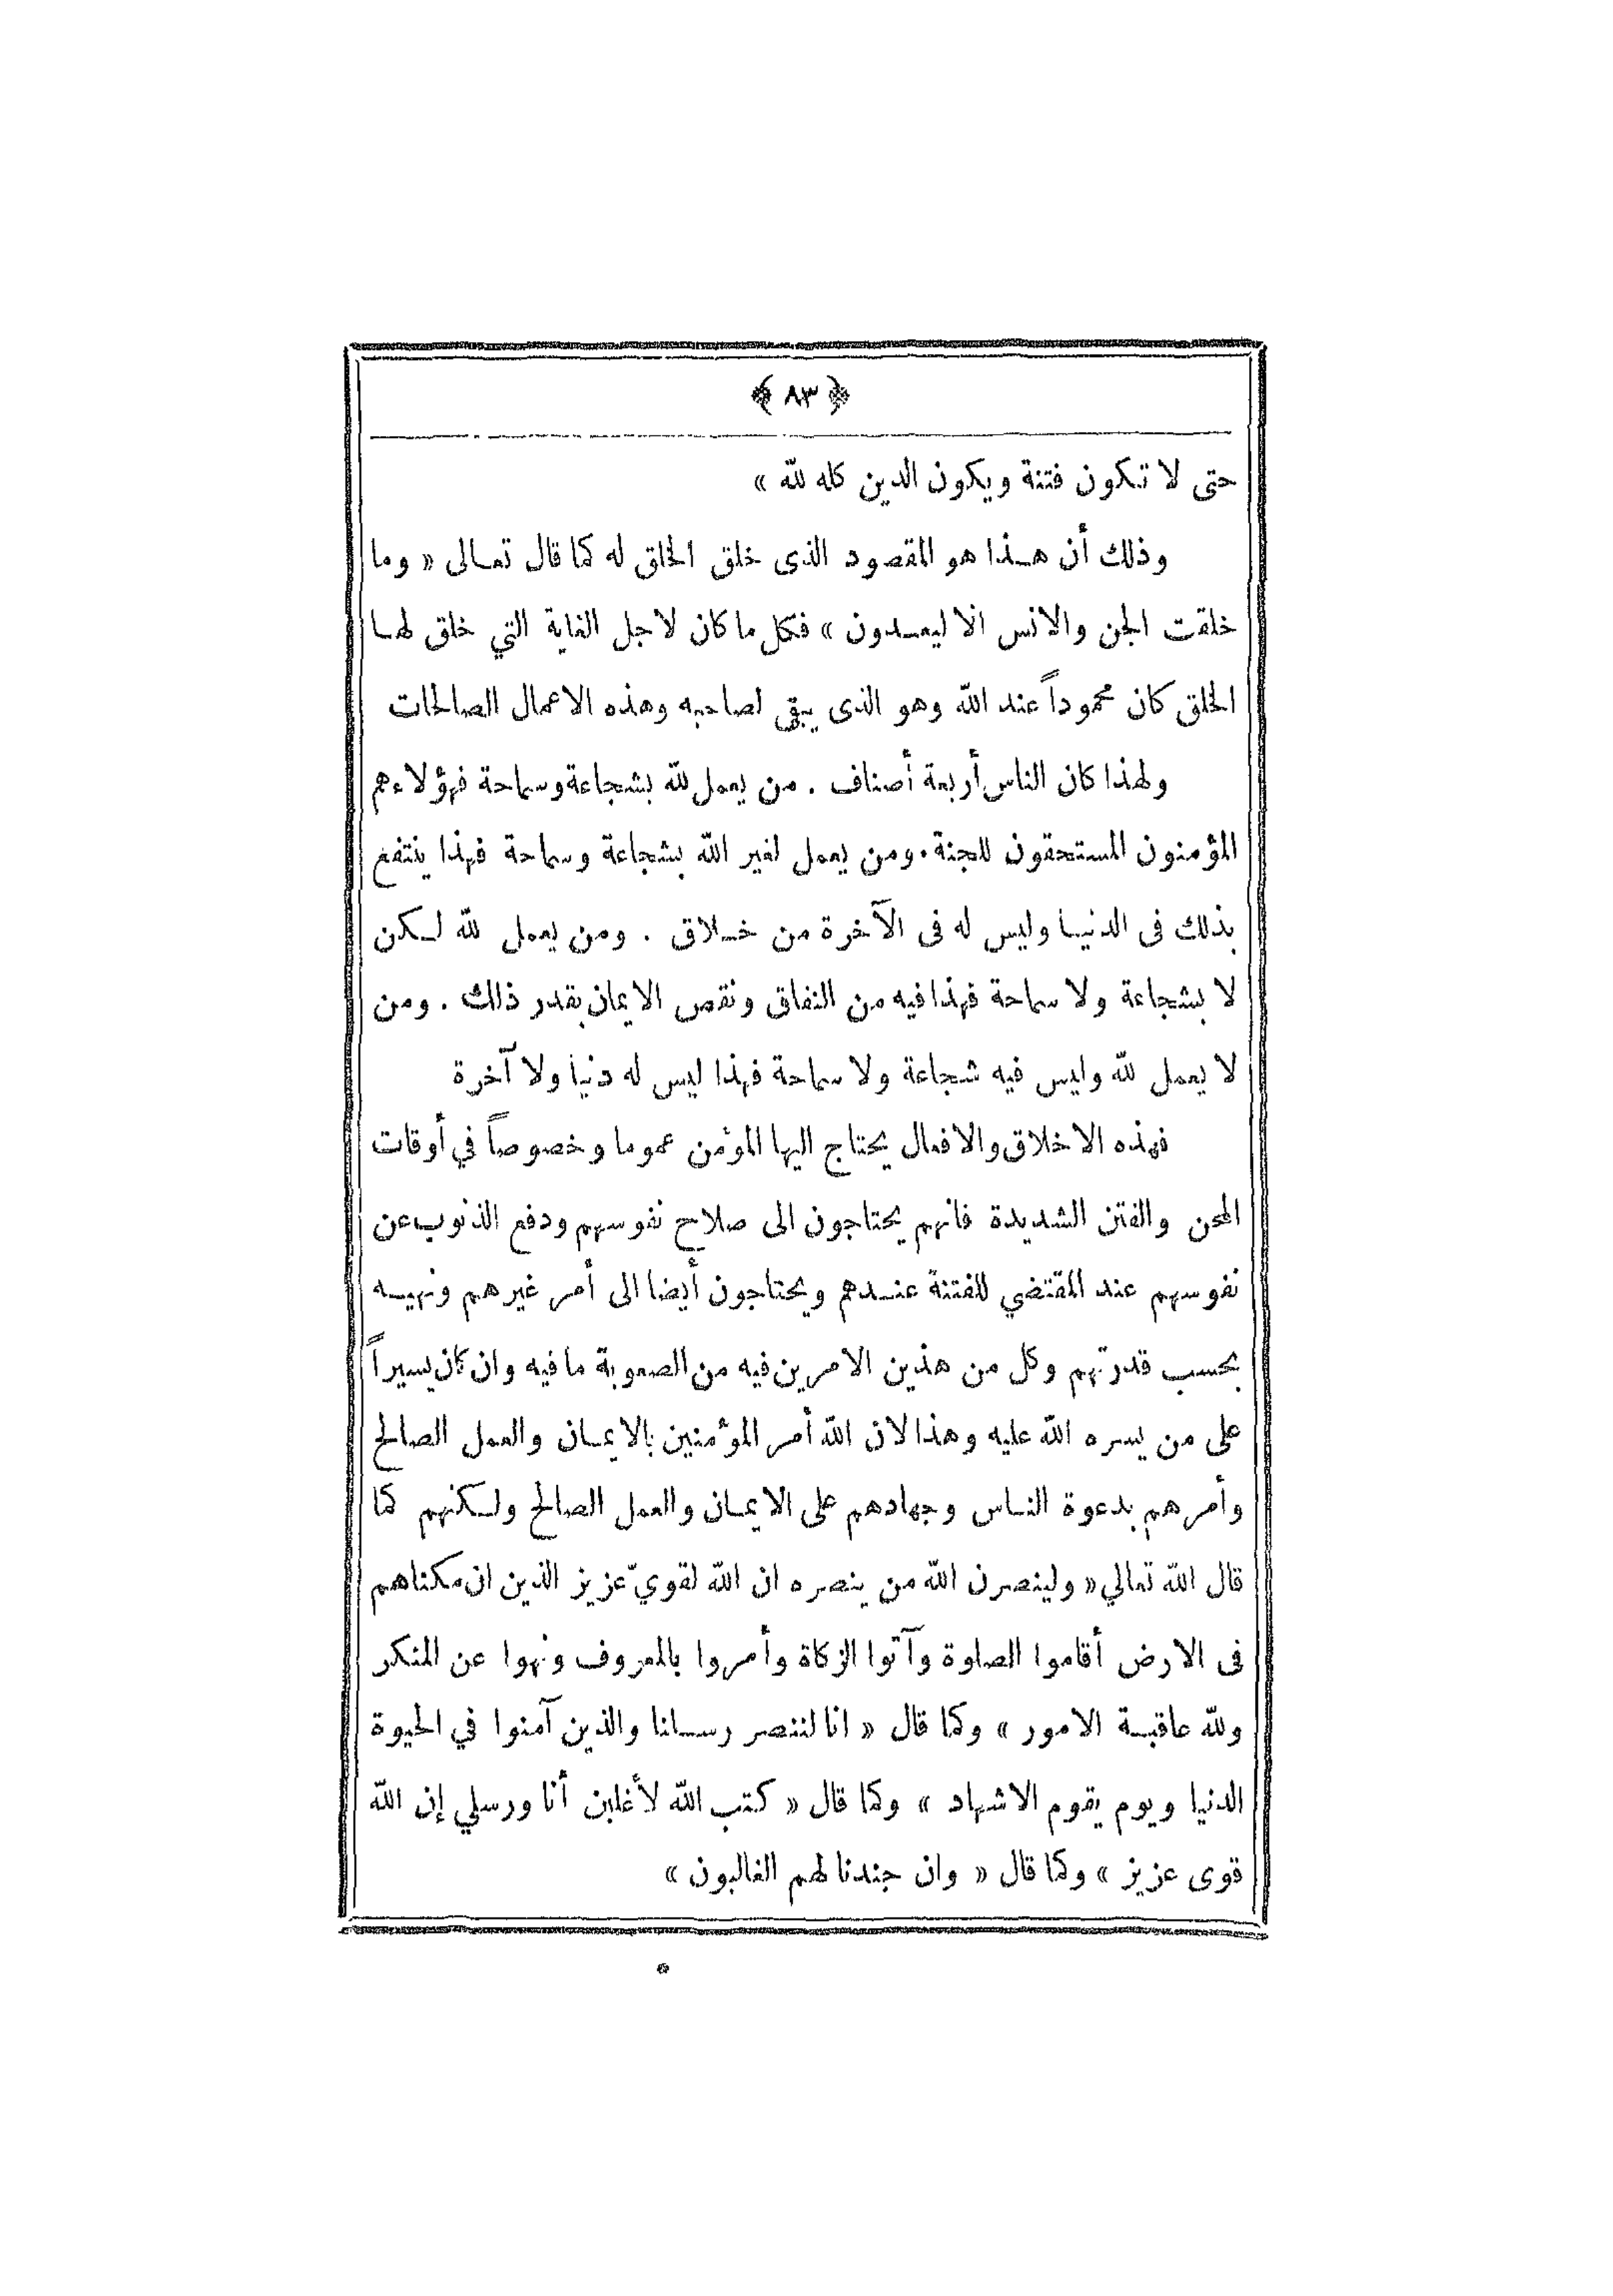 ﴿ ٨٣ ﴾
حتى لا تكون فتنة ويكون الدين كله لله »
وذلك أن هذا هو المقصود الذى خلق الخلق له كما قال تعالى « وما
خلقت الجن والانس الا ليعبدون » فكل ما كان لاجل الغاية التي خلق لها
الخلق كان محموداً عند الله وهو الذى يبقى لصاحبه وهذه الاعمال الصالحات
ولهذا كان الناس أربعة أصناف . من يعمل لله بشجاعة وسماحة فهؤلاء هم
المؤمنون المستحقون للجنة . ومن يعمل لغير الله بشجاعة وسماحة فهذا ينتفع
بذلك فى الدنيا وليس له فى الآخرة من خلاق . ومن يعمل لله لكن
لا بشجاعة ولا سماحة فهذا فيه من النفاق ونقص الايمان بقدر ذلك . ومن
لا يعمل لله وليس فيه شجاعة ولا سماحة فهذا ليس له دنيا ولا آخرة
فهذه الاخلاق والافعال يحتاج اليها المؤمن عموما وخصوصاً في أوقات
المحن والفتن الشديدة فانهم يحتاجون الى صلاح نفوسهم ودفع الذنوب عن
نفوسهم عند المقتضي للفتنة عندهم ويحتاجون أيضا الى أمر غيرهم ونهيه
بحسب قدرتهم وكل من هذين الامرين فيه من الصعوبة ما فيه وان كان يسيراً
على من يسره الله عليه وهذا لان الله أمر المؤمنين بالايمان والعمل الصالح
وأمرهم بدعوة الناس وجهادهم على الايمان والعمل الصالح ولكنهم كما
قال الله تعالي « ولينصرن الله من ينصره ان الله لقويّ عزيز الذين ان مكناهم
فى الارض أقاموا الصلوة وآتوا الزكاة وأمروا بالمعروف ونهوا عن المنكر
ولله عاقبة الامور » وكما قال « انا لننصر رسلنا والذين آمنوا في الحيوة
الدنيا ويوم يقوم الاشهاد » وكما قال « كتب الله لأغلبن أنا ورسلي إن الله
قوى عزيز » وكما قال « وان جندنا لهم الغالبون »